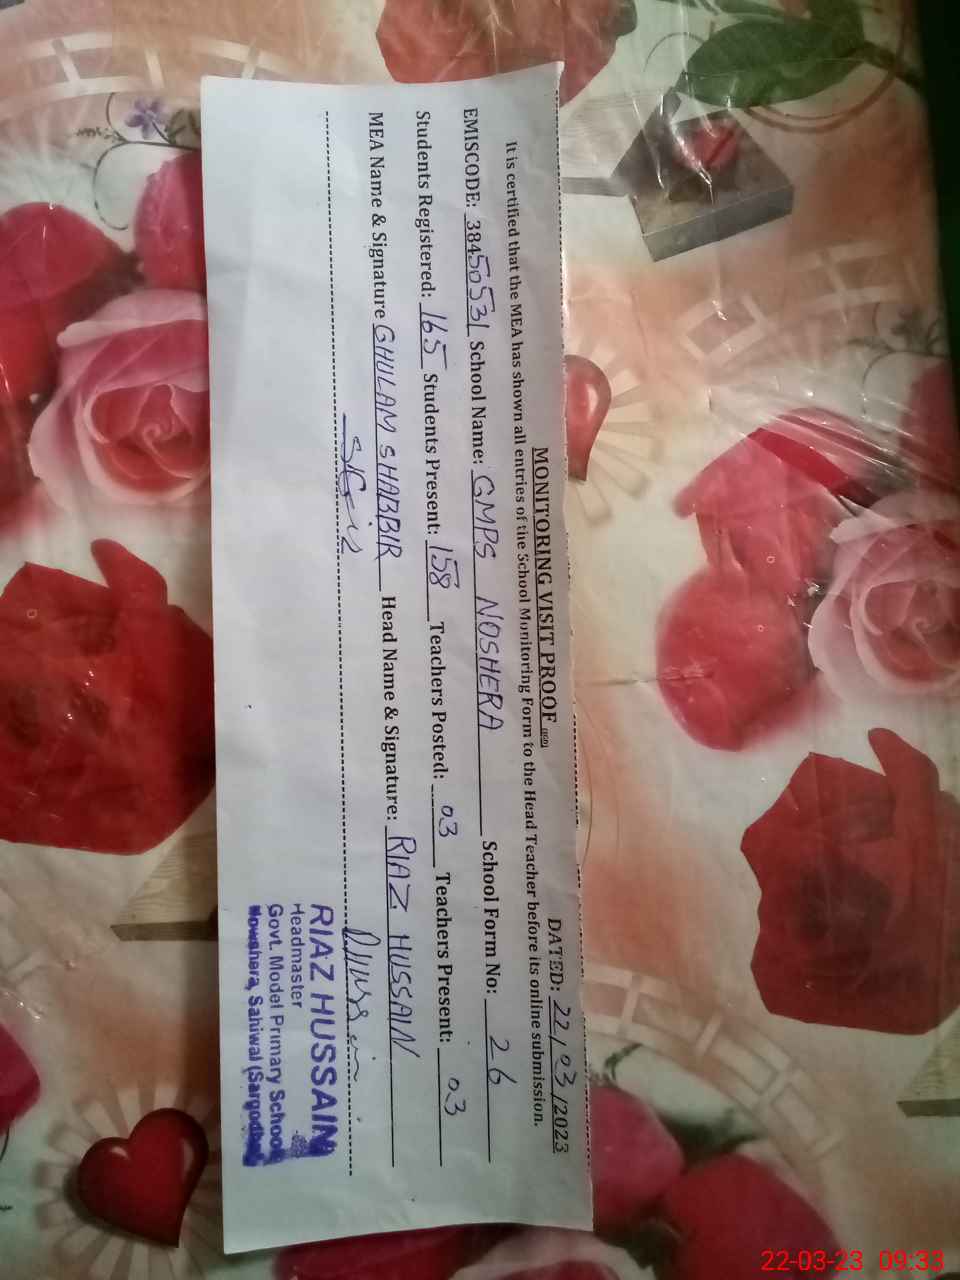 MONITORING VISIT PROOF
DATED: 22/03/2023
It is certified that the MEA has shown all entries of the School Monitoring Form to the Head Teacher before its online submission.
EMISCODE: 38450531 School Name: GMPS NOSHERA School Form No: 26
Students Registered: 165 Students Present: 158 Teachers Posted: 03 Teachers Present: 03
MEA Name & Signature GHULAM SHABBIR Head Name & Signature: RIAZ HUSSAIN
RIAZ HUSSAIN
Headmaster
Govt. Model Primary School
Nowshera, Sahiwal (Sargodha)
22-03-23 09:33